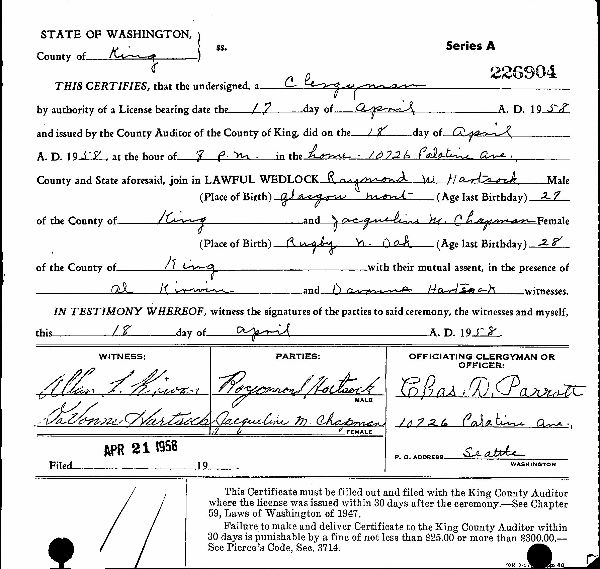 STATE OF WASHINGTON,
County of King ss.
Series A
226904
THIS CERTIFIES, that the undersigned, a Clergyman
by authority of a License bearing date the 17 day of April A. D. 1958
and issued by the County Auditor of the County of King, did on the 18 day of April
A. D. 1958, at the hour of 8 P.M. in the home - 10726 Palatine Ave.
County and State aforesaid, join in LAWFUL WEDLOCK Raymond W. Hartsock Male
(Place of Birth) Glasgow Mont (Age last Birthday) 29
of the County of King and Jacqueline M. Chapman Female
(Place of Birth) Rugby N. Dak (Age last Birthday) 28
of the County of King with their mutual assent, in the presence of
Al Kirwin and Hartsock witnesses.
IN TESTIMONY WHEREOF, witness the signatures of the parties to said ceremony, the witnesses and myself,
this 18 day of April A. D. 1958
WITNESS: PARTIES: OFFICIATING CLERGYMAN OR OFFICER:
Allen L. Kirwan Raymond Hartsock Chas. D. Parrott
MALE
DaVonne Hartsock Jacqueline M. Chapman 10726 Palatine Ave.
FEMALE
APR 21 1958
P. O. ADDRESS Seattle
WASHINGTON
Filed 19
This Certificate must be filled out and filed with the King County Auditor
where the license was issued within 30 days after the ceremony.—See Chapter
59, Laws of Washington of 1947.
Failure to make and deliver Certificate to the King County Auditor within
30 days is punishable by a fine of not less than $25.00 or more than $300.00.—
See Pierce's Code, Sec. 3714.